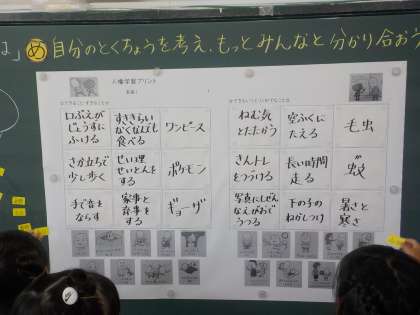 は」め 自分のとくちょうを考え、もっとみんなと分かり合おう
人権学習プリント
口ぶえが
じょうずに
ふける
すききらい
なくなんでも
食べる
ワンピース
さか立ちで
少し歩く
せい理
せいとんを
する
ポケモン
手で音を
ならす
家事と
育事を
する
ギョーザ
ねむ気
とたたかう
空ふくに
たえる
毛虫
きんトレ
をつづける
長い時間
走る
蚊
写真にしぜん
なえがおで
うつる
下の子の
ねかしつけ
暑さと
寒さ